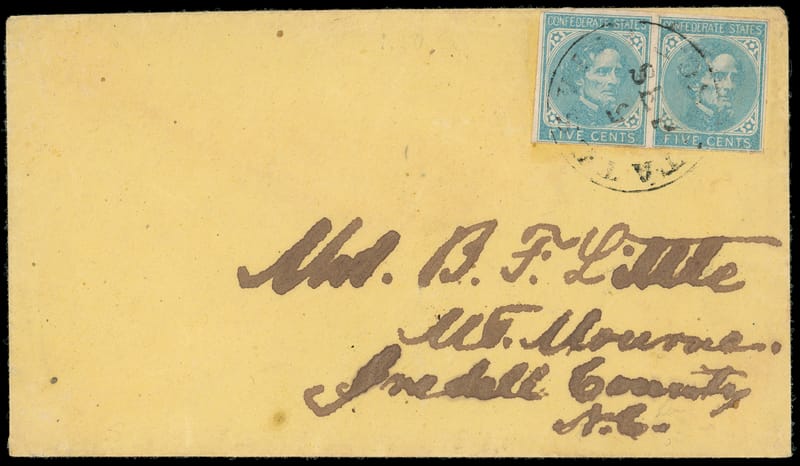 CONFEDERATE STATES CONFEDERATE STATES
FIVE CENTS FIVE CENTS
Mrs. B. F. Little
Mt. Mourne.
Iredell County
N.C.